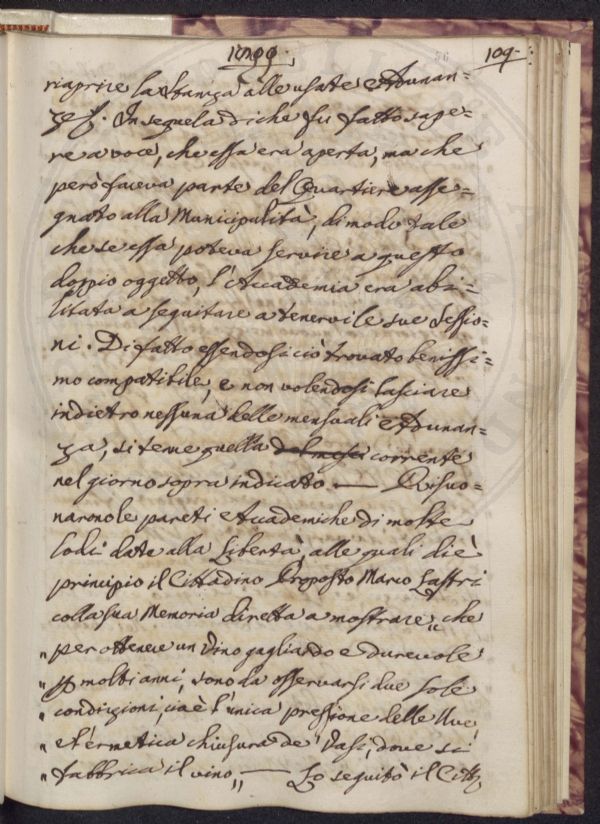 1799. 56 109.
riaprire la Stanza alle usate Adunan=
ze. In seguela di che fu fatto sape=
re a voce, che essa era aperta, ma che
però faceva parte del Quartiere asse=
gnato alla Municipalità, di modo tale
che se essa poteva servire a questo
doppio oggetto, l'Accademia era abi=
litata a seguitare a tenervi le sue Sessio=
ni. Di fatto essendosi ciò trovato benissi=
mo compatibile, e non volendosi lasciare
indietro nessuna delle mensuali Adunan=
za, si tenne quella del mese corrente
nel giorno sopra indicato — Risuo=
narono le pareti Accademiche di molte
Lodi date alla Libertà, alle quali diè
principio il Cittadino Proposto Marco Lastri
colla sua Memoria diretta a mostrare „ che
„ per ottenere un Vino gagliardo e durevole
„ p molti anni, sono da osservarsi due sole
„ condizioni, cioè l'unica pressione delle Uve,
„ e l'ermetica chiusura de' Vasi, dove si
„ fabbrica il vino „ — Lo seguitò il Citt.